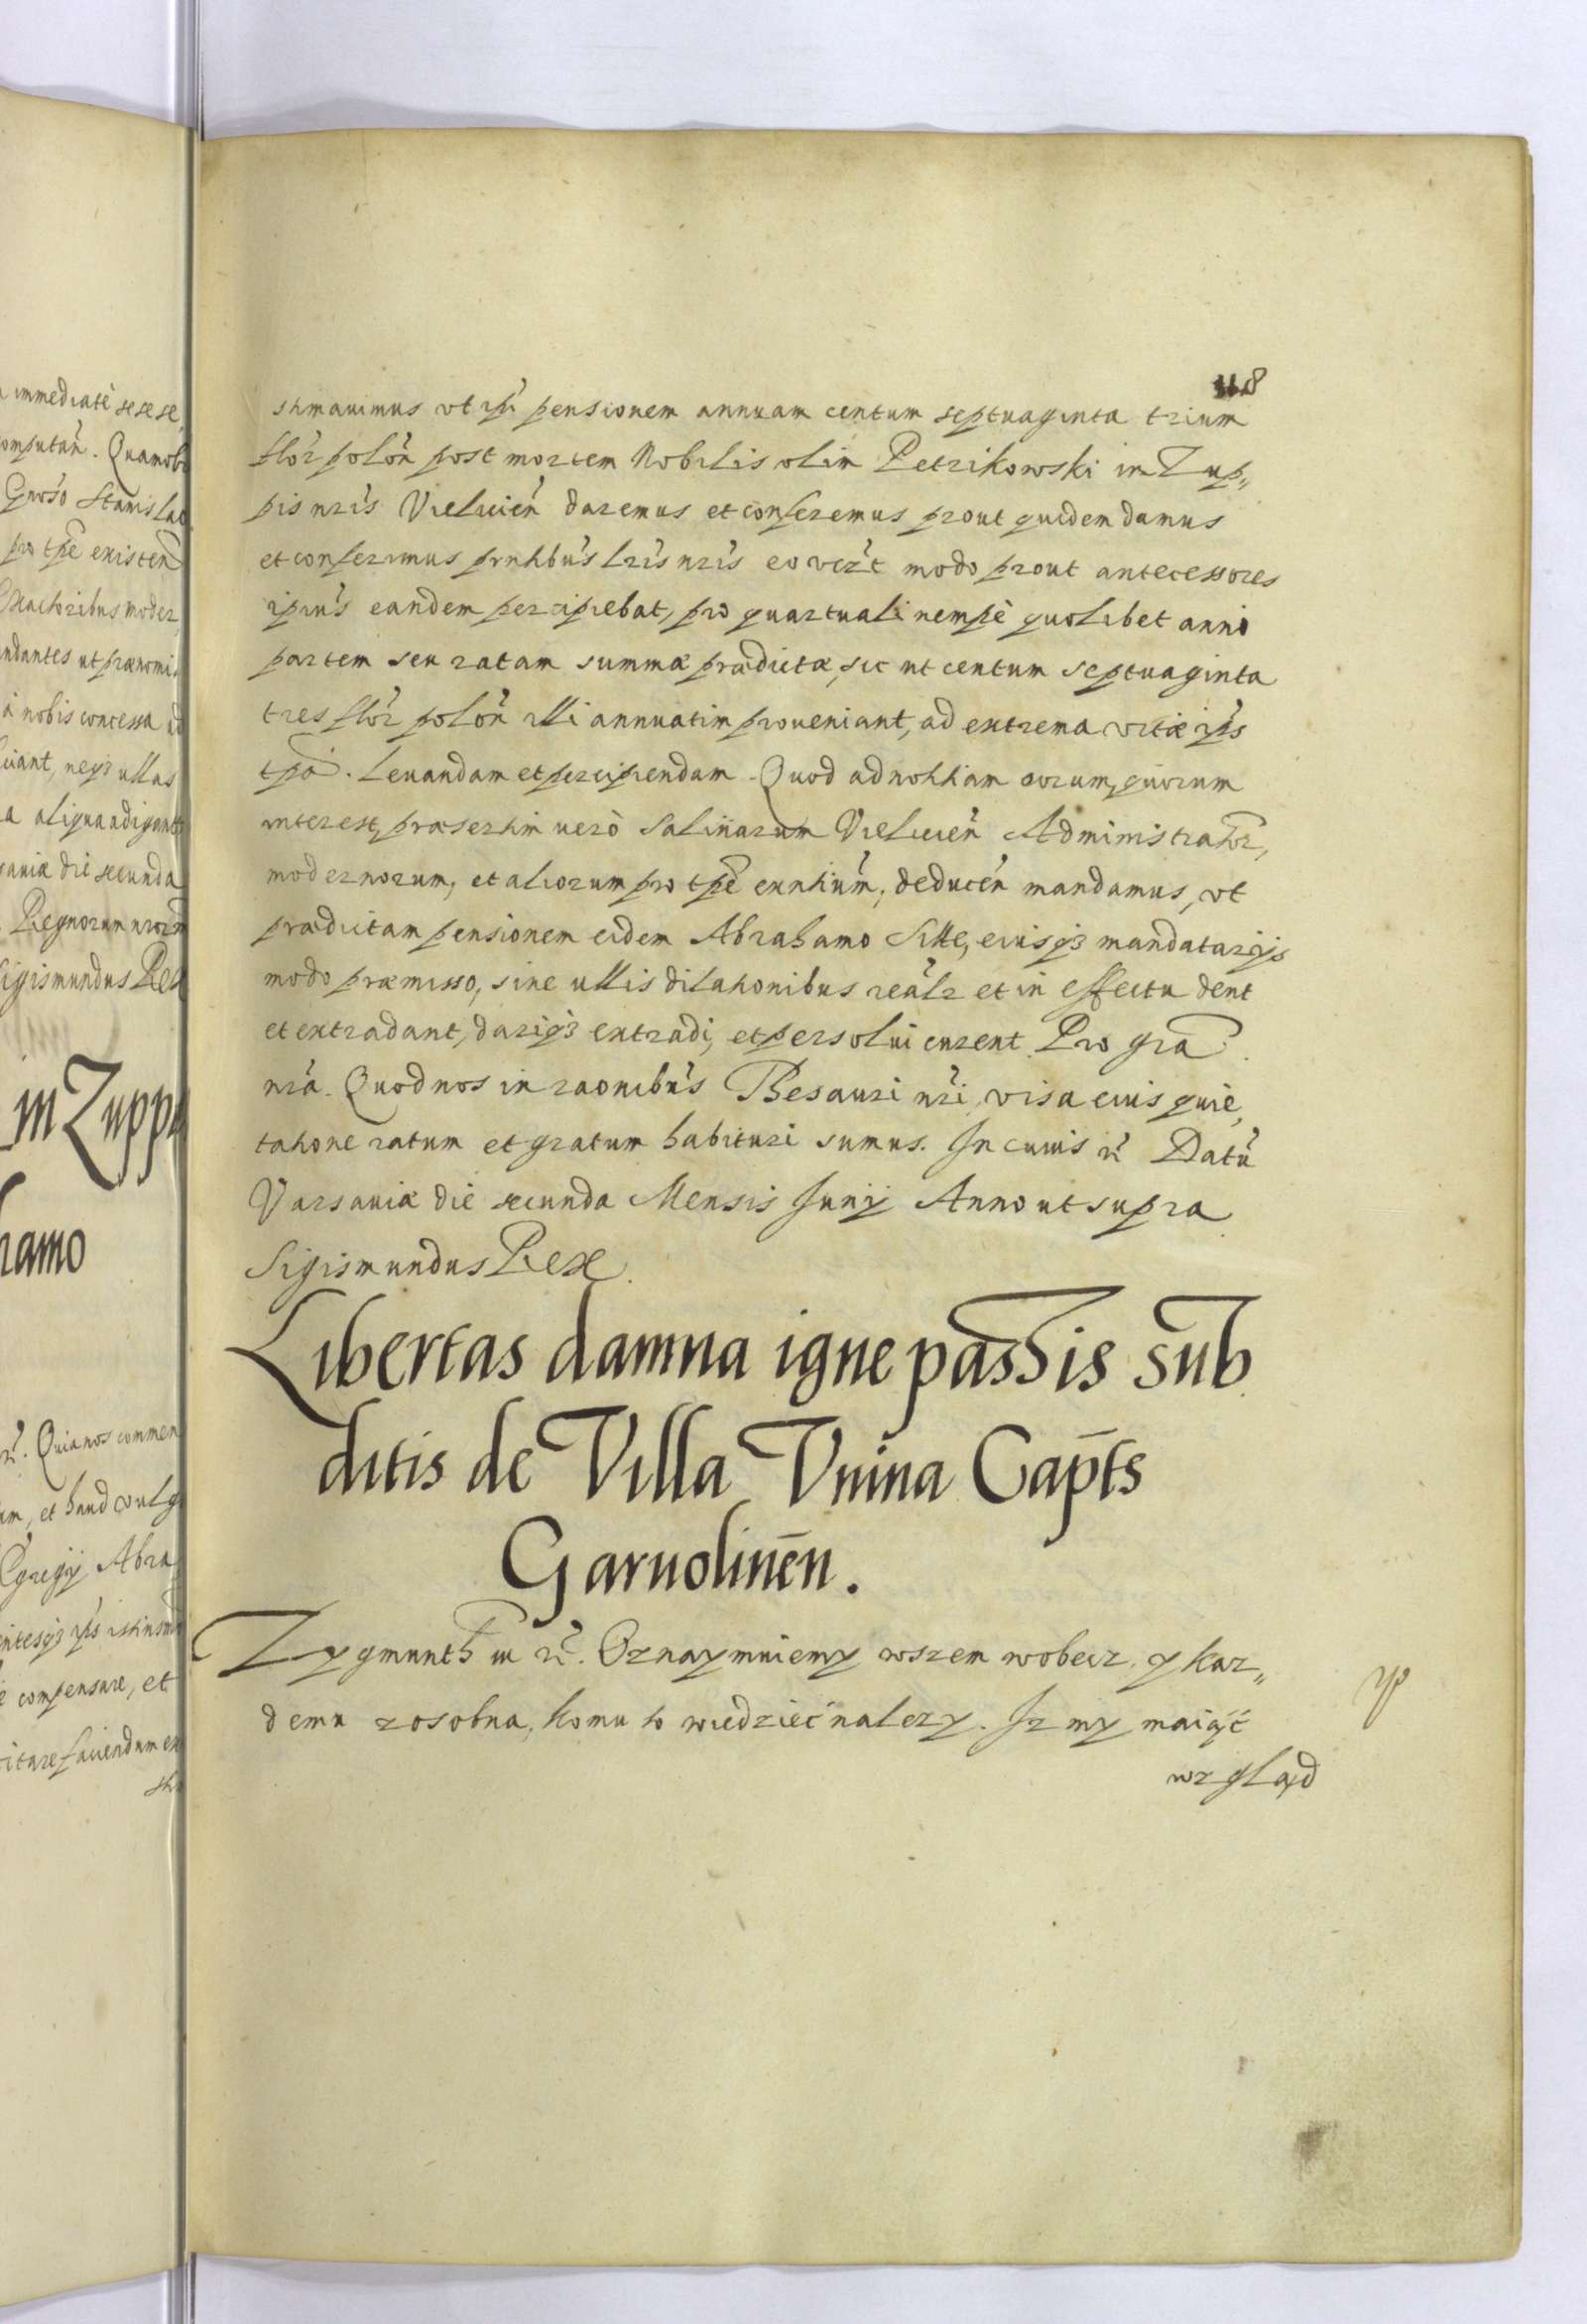 118
stimauimus vt ipsi pensionem annuam centum septuaginta trium
flor polon post mortem Nobilis olim Petrikowski in Zup„
pis nris Vielicien daremus et conferemus prout quidem damus
et conferimus pntibus lris nris eo vert modo prout antecessores
ipius eandem percipiebat, pro quartuali nempe quolibet anni
partem seu ratam summæ prædictæ, sic ut centum septuaginta
tres flor polon illi annuatim proueniant, ad extrema vitæ ips
tpa. Leuandam et percipiendam. Quod ad notitiam eorum, quorum
interest, præsertim uerò Salinarum Vielicien Administrator,
modernorum, et aliorum pro tpe exntium, deducen mandamus, vt
prædictam pensionem eidem Abrahamo Sitte, eiusq3 mandatarijs
modo præmisso, sine ullis dilationibus realr et in effectu dent
et extradant, dariq3 extradi, et persolui curent. Pro gra
nra. Quod nos in raonibus Thesauri nri, visa eius quie,
tatione ratum et gratum habituri sumus. In cuius rei Datu
Varsauiæ die secunda Mensis Junij Anno ut supra
Sigismundus Rex.
Libertas damna igne passis sub
ditis de Villa Vnina Capts
Garuolinen.
Zygmunth iii rc. Oznaymuiemy wszem wobecz. y kaz„
demu zosobna, komu to wiedzieć nalezy. Iz my maiąć
wzgląd
immediatè sese
computan. Quamob
Gnoso Stanislao
pro tpe existen
Exactoribus moder
ndantes ut prænomi
à nobis concessa ad
ciant, neq3 ullas
a aliqua adigant
sauiæ die secunda
Regnorum nrorum
Sigismundus Rex
in Zupp
hamo
rc. Quia nos commen
um, et haud vulg
Egregij Abra
compensare, et
citare faciendum ex
sti